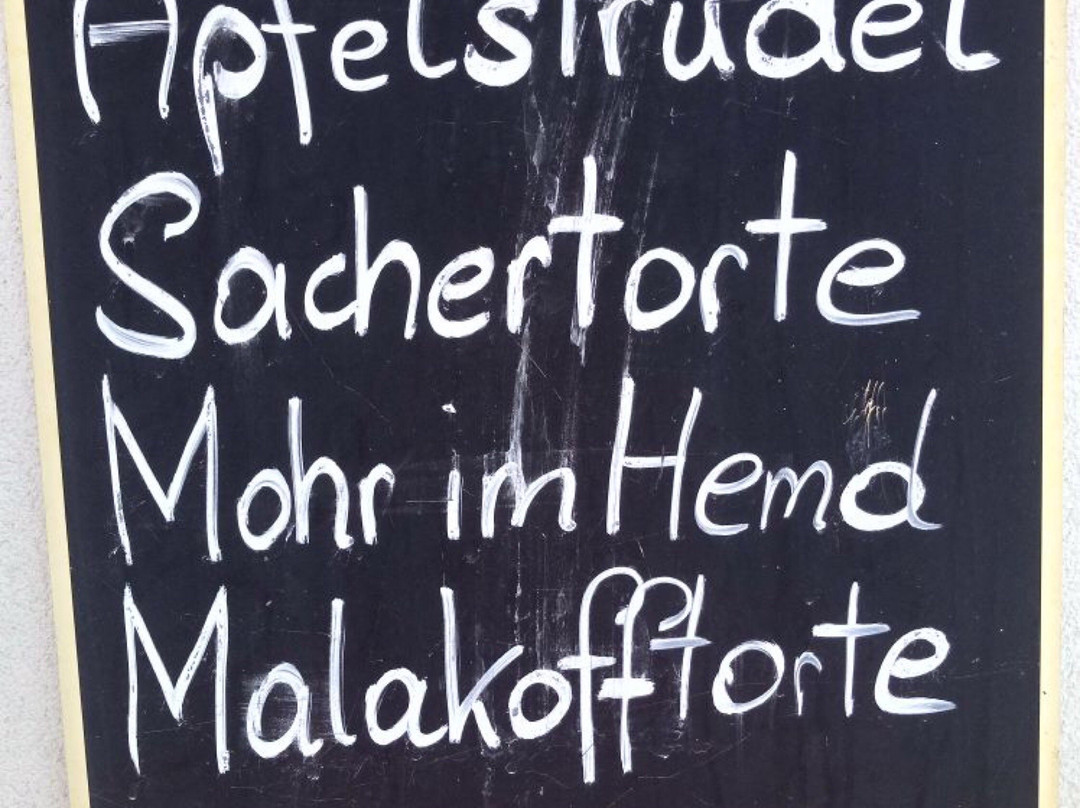 Apfelstrudel
Sachertorte
Mohr im Hemd
Malakofftorte